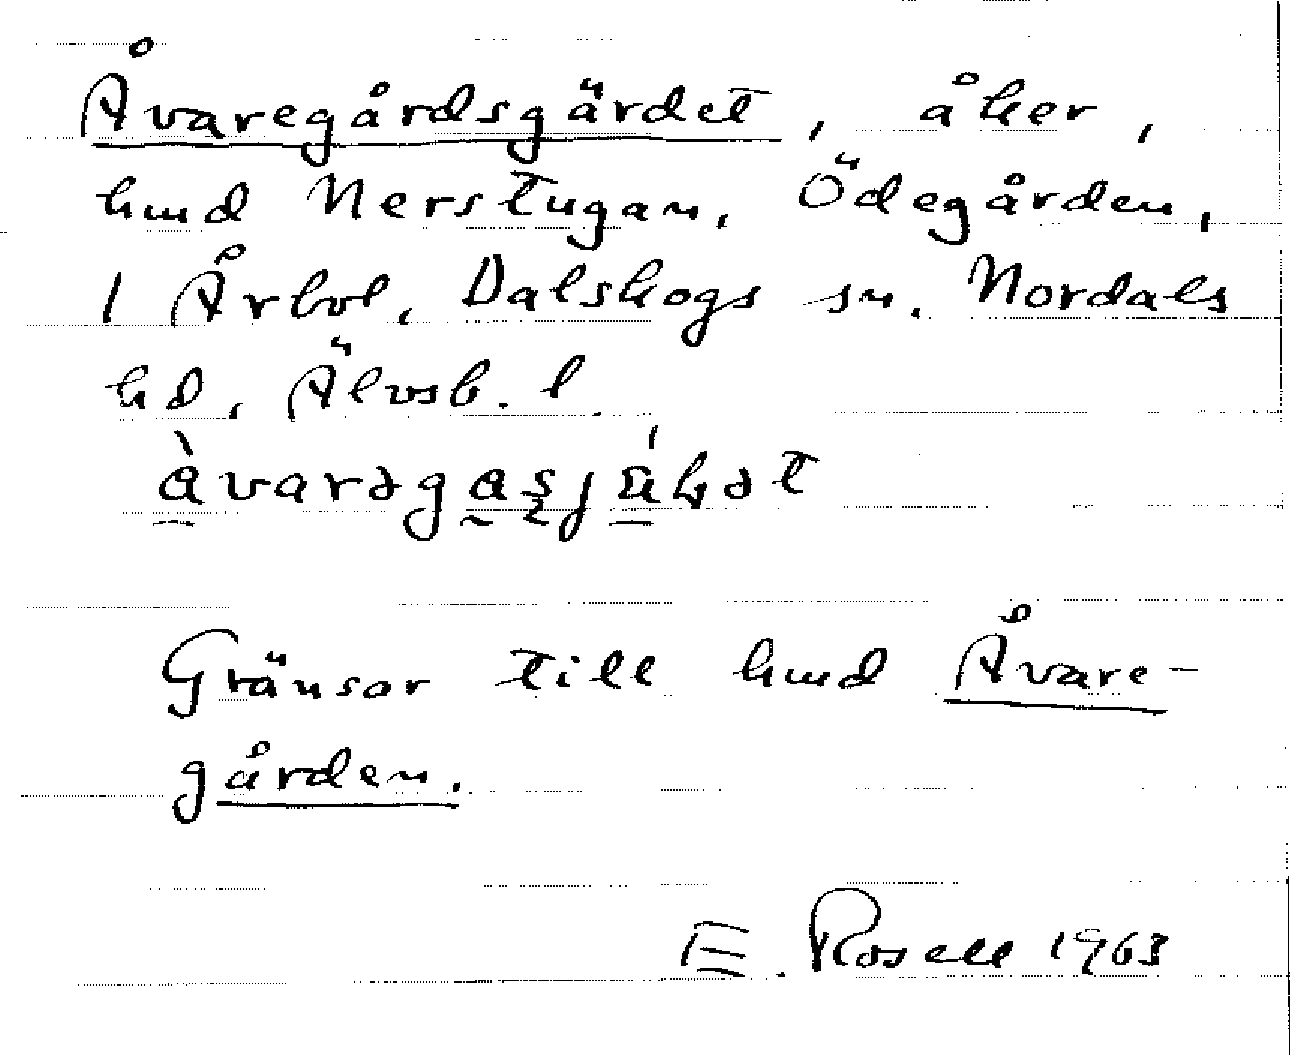 Åvaregårdsgärdet, åker,
hmd Nerstugan, Ödegården,
1 Årbol, Dalskogs sn. Nordals
hd, Älvsb. l.
Gränsar till hmd Åvare-
gården.
E. Rosell 1963